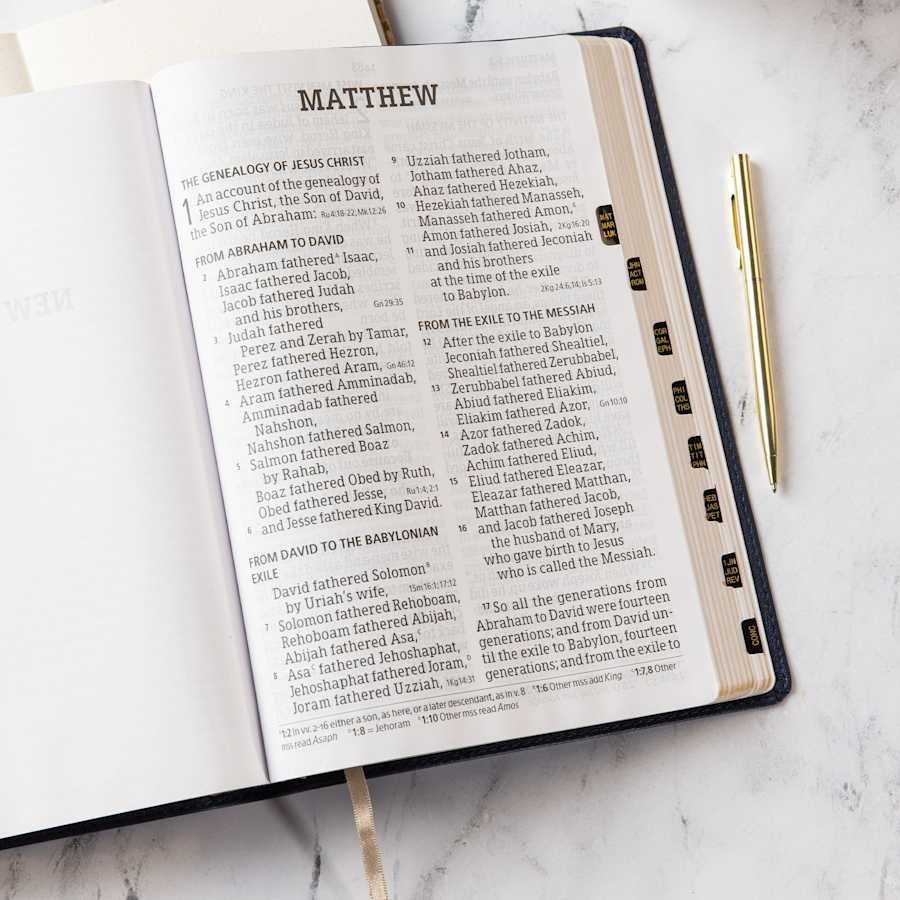 MATTHEW
THE GENEALOGY OF JESUS CHRIST
1 An account of the genealogy of
Jesus Christ, the Son of David,
the Son of Abraham: Ru 4:18-22; Mk 12:26
FROM ABRAHAM TO DAVID
2 Abraham fathered^A Isaac,
Isaac fathered Jacob,
Jacob fathered Judah
and his brothers, Gn 29:35
3 Judah fathered
Perez and Zerah by Tamar,
Perez fathered Hezron,
Hezron fathered Aram, Gn 46:12
4 Aram fathered Amminadab,
Amminadab fathered
Nahshon,
Nahshon fathered Salmon,
5 Salmon fathered Boaz
by Rahab,
Boaz fathered Obed by Ruth,
Obed fathered Jesse, Ru 1:4; 2:1
6 and Jesse fathered King David.
FROM DAVID TO THE BABYLONIAN
EXILE
David fathered Solomon^B
by Uriah's wife, 1Sm 16:1; 17:12
7 Solomon fathered Rehoboam,
Rehoboam fathered Abijah,
Abijah fathered Asa,^C
8 Asa^C fathered Jehoshaphat,
Jehoshaphat fathered Joram,^D
Joram fathered Uzziah, 1Kg 14:31
9 Uzziah fathered Jotham,
Jotham fathered Ahaz,
Ahaz fathered Hezekiah,
10 Hezekiah fathered Manasseh,
Manasseh fathered Amon,^E
Amon fathered Josiah, 2Kg 16:20
11 and Josiah fathered Jeconiah
and his brothers
at the time of the exile
to Babylon. 2Kg 24:6,14; Is 5:13
FROM THE EXILE TO THE MESSIAH
12 After the exile to Babylon
Jeconiah fathered Shealtiel,
Shealtiel fathered Zerubbabel,
13 Zerubbabel fathered Abiud,
Abiud fathered Eliakim,
Eliakim fathered Azor, Gn 10:10
14 Azor fathered Zadok,
Zadok fathered Achim,
Achim fathered Eliud,
15 Eliud fathered Eleazar,
Eleazar fathered Matthan,
Matthan fathered Jacob,
16 and Jacob fathered Joseph
the husband of Mary,
who gave birth to Jesus
who is called the Messiah.
17 So all the generations from
Abraham to David were fourteen
generations; and from David un-
til the exile to Babylon, fourteen
generations; and from the exile to
^A1:2 In vv. 2-16 either a son, as here, or a later descendant, as in v. 8 ^B1:6 Other mss add King ^C1:7,8 Other
mss read Asaph ^D1:8 = Jehoram ^E1:10 Other mss read Amos
MAT
MAR
LUK
JHN
ACT
ROM
COR
GAL
EPH
PHI
COL
THS
TIM
TIT
PHN
HEB
JAS
PET
1JN
JUD
REV
CONC
NEW